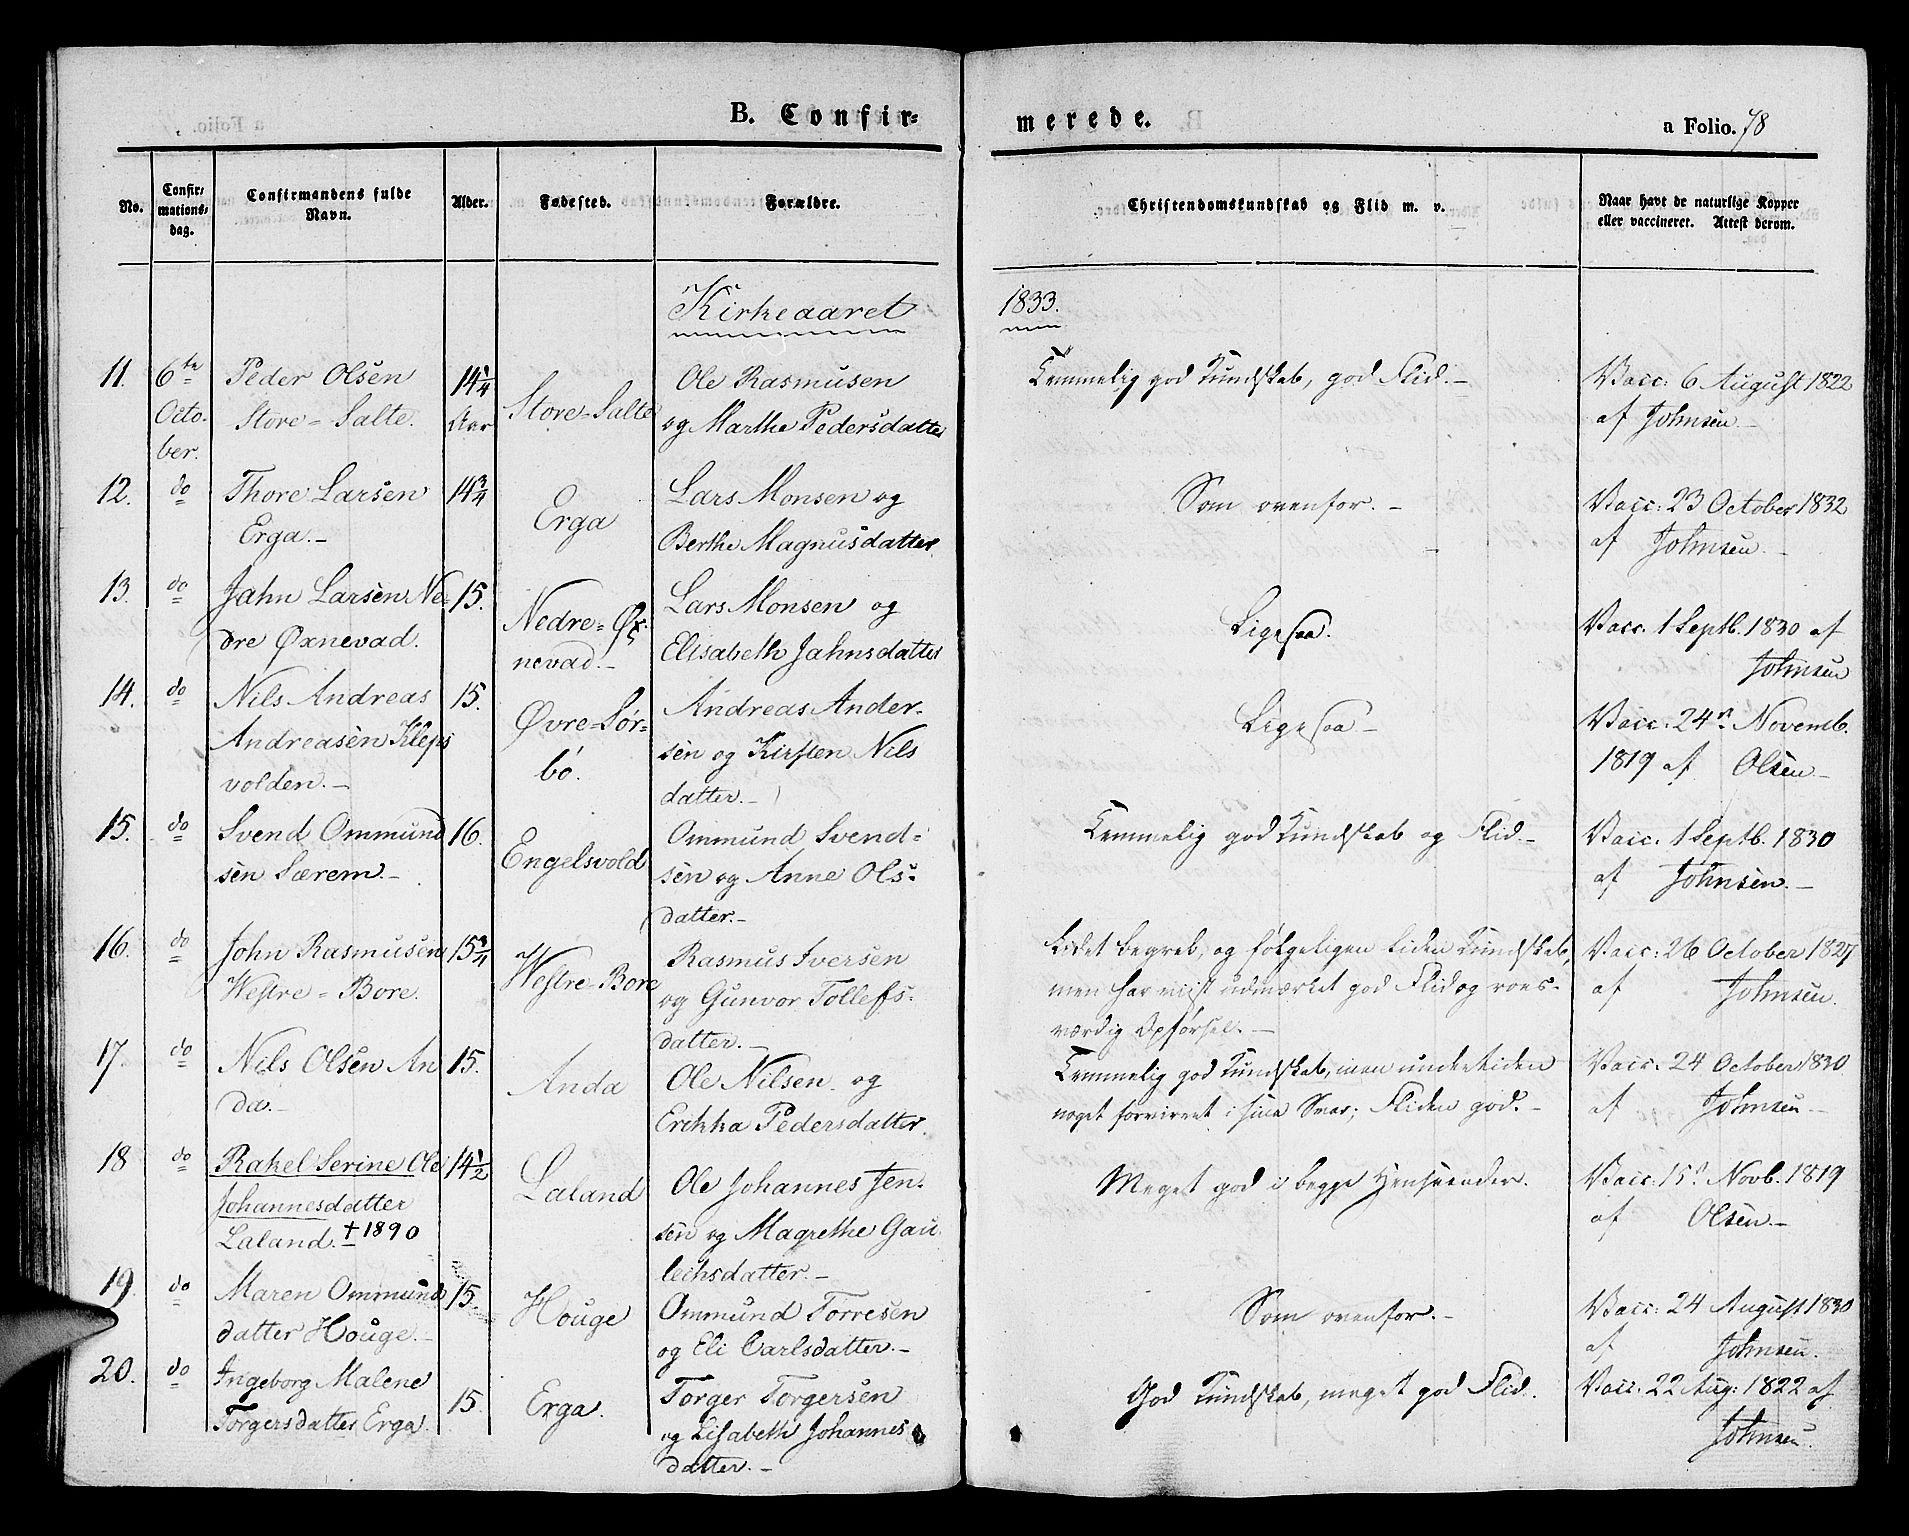 B. Confir-
merede.
a Folio. 78
No.
Confir-
mations-
dag.
Confirmandens fulde
Navn.
Alder.
Fødested.
Forældre.
Christendomskundskab og Flid m. v.
Naar havt de naturlige Kopper
eller vaccineret. Attest derom.
Kirkeaaret
1833.
11.
6te
Octo-
ber.
Peder Olsen
Store-Salte.
14 1/4
Aar
Store-Salte
Ole Rasmusen
og Marthe Pedersdatter
Temmelig god Kundskab, god Flid.-
Vacc: 6 August 1822
af Johnsen.-
12.
do
Thore Larsen
Erga.-
14 3/4
Erga
Lars Monsen og
Berthe Magnusdatter
Som ovenfor.-
Vacc: 23 October 1832
af Johnsen.-
13.
do
Jahn Larsen Ne-
dre Øxnevad.
15.
Nedre-Øx-
nevad.-
Lars Monsen og
Elisabeth Jahnsdatter
Ligesaa.
Vacc. 1 Septb. 1830 af
Johnsen
14.
do
Nils Andreas
Andreasen Kleps
volden.-
15.
Øvre-Sør-
bø.
Andreas Ander-
sen og Kirsten Nils
datter.-
Ligesaa-
Vacc: 24n Novemb.
1819 af Olsen-
15.
do
Svend Ommund
sen Særem.-
16.
Engelsvold
Ommund Svend-
sen og Anne Ols-
datter.-
Temmelig god Kundskab og Flid.-
Vacc. 1 Septb. 1830
af Johnsen.-
16.
do
John Rasmusen
Westre-Bore.
15 3/4
Westre-Bore
Rasmus Iversen
og Gunvor Tollefs-
datter.-
Lidet begreb, og følgeligen liden Kundskab,
men har viist udmærket god Flid og roes-
værdig Opførsel.-
Vacc: 26 October 1827
af Johnsen.
17.
do
Nils Olsen An
da.-
15.
Anda
Ole Nilsen og
Erikka Pedersdatter
Temmelig god Kundskab, men undertiden
noget forvirret i sine Svar; Fliden god.-
Vacc: 24 October 1830
af Johnsen-
18
do
Rakel Serine Ole
Johannesdatter
Laland. +1890
14 1/2
Laland
Ole Johannes Jen-
sen og Magrethe Gau
lechsdatter.-
Meget god i begge Henseender.
Vacc: 15n Novb. 1819
af Olsen.-
19.
do
Maren Ommund
datter Houge.-
15.
Houge
Ommund Torresen
og Eli Carlsdatter.-
Som ovenfor.-
Vacc: 24 August 1830
af Johnsen.
20.
do
Ingeborg Malene
Torgersdatter Erga.
15.
Erga.
Torger Torgersen
og Lisabeth Johannes
datter.-
God Kundskab, meget god Flid.
Vacc. 22 Aug: 1822 af
Johnsen.